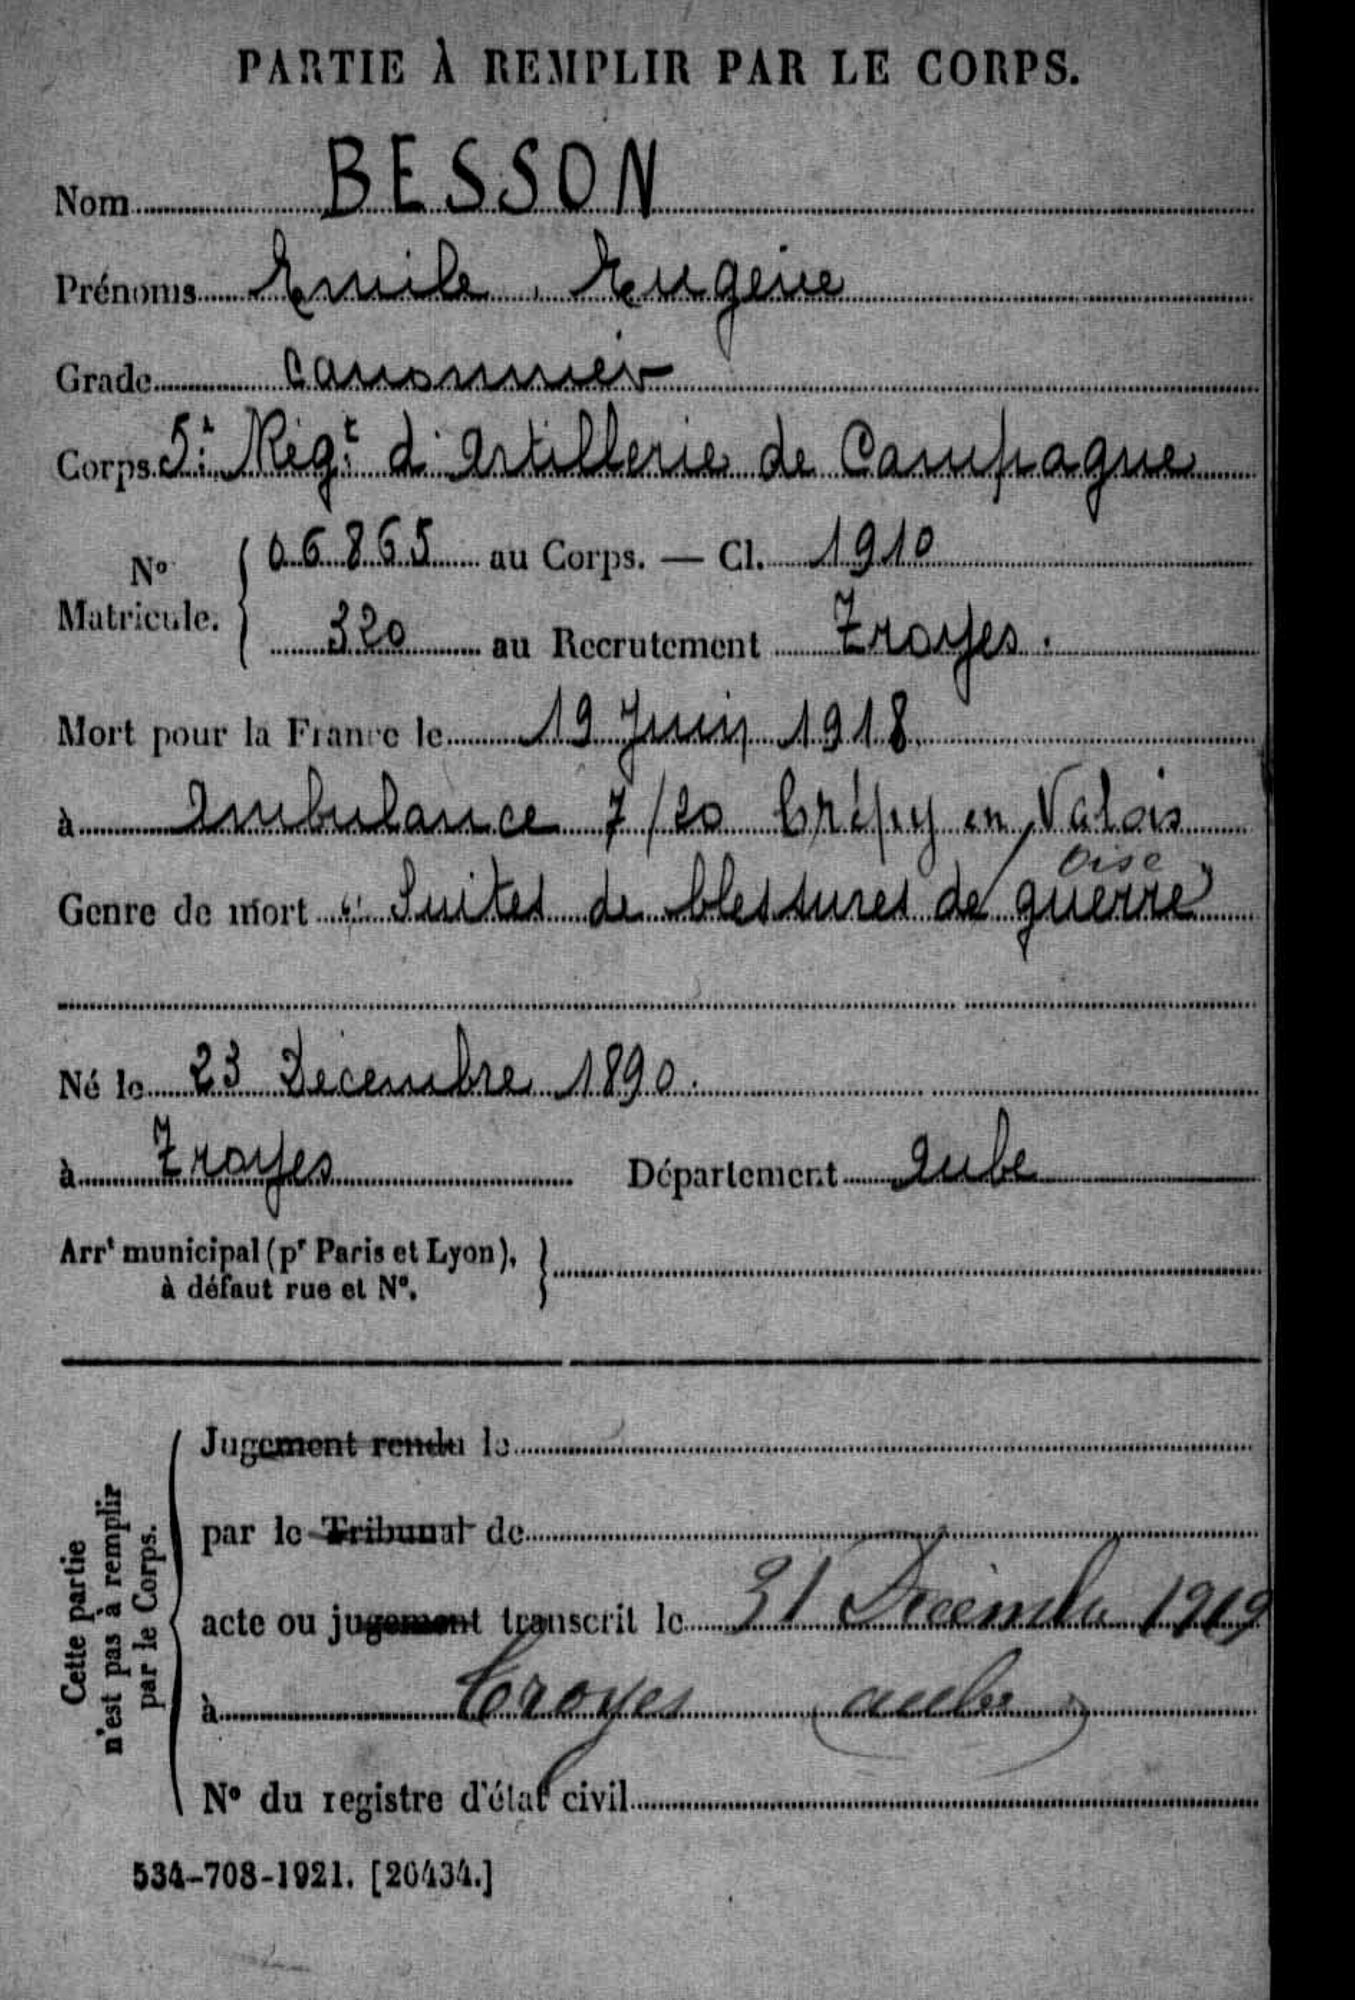 PARTIE À REMPLIR PAR LE CORPS.
Nom BESSON
Prénoms Emile, Eugène
Grade Canonnier
Corps 5e Régt d'Artillerie de Campagne
No Matricule. { 06865 au Corps. — Cl. 1910
320 au Recrutement Troyes.
Mort pour la France le 19 Juin 1918
à Ambulance 7/20 Crépy en Valois
Oise
Genre de mort "Suites de blessures de guerre"
Né le 23 Décembre 1890.
à Troyes Département Aube
Arrt municipal (pr Paris et Lyon),
à défaut rue et No.
Cette partie
n'est pas à remplir
par le Corps.
Jugement rendu le
par le Tribunal de
acte ou jugement transcrit le 31 Décembre 1919
à Troyes (Aube)
No du registre d'état civil
534-708-1921. [26434.]